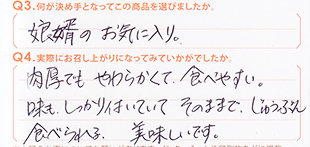 Q3.何が決め手となってこの商品を選びましたか。
娘婿の お気に入り。
Q4.実際にお召し上がりになってみていかがでしたか。
肉厚でも やわらかくて、食べやすい。
味も しっかり付いていて そのままで、じゅうぶん
食べられる、 美味しいです。